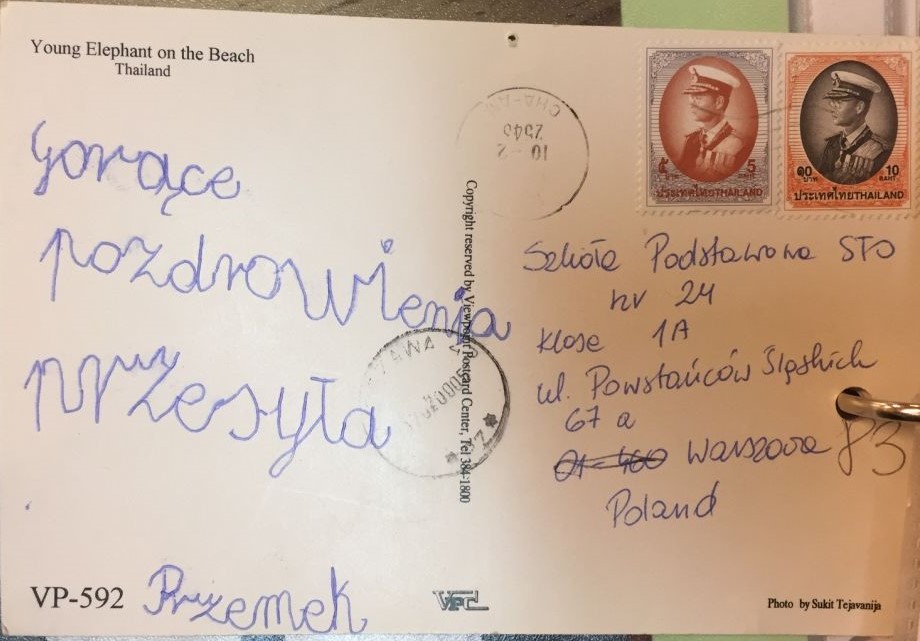 Young Elephant on the Beach
Thailand
Gorące
pozdrowienia
przesyła
Przemek
VP-592
Copyright reserved by Viewpoint Postcard Center, Tel 384-1800
VPC
CHA-AM
10-2
2543
๕ บาท
5 BAHT
ประเทศไทยTHAILAND
๑๐ บาท
10 BAHT
ประเทศไทยTHAILAND
Szkoła Podstawowa STO
nr 24
klasa 1A
ul. Powstańców Śląskich
67 a
01-400 Warszawa 83
Poland
Photo by Sukit Tejavanija